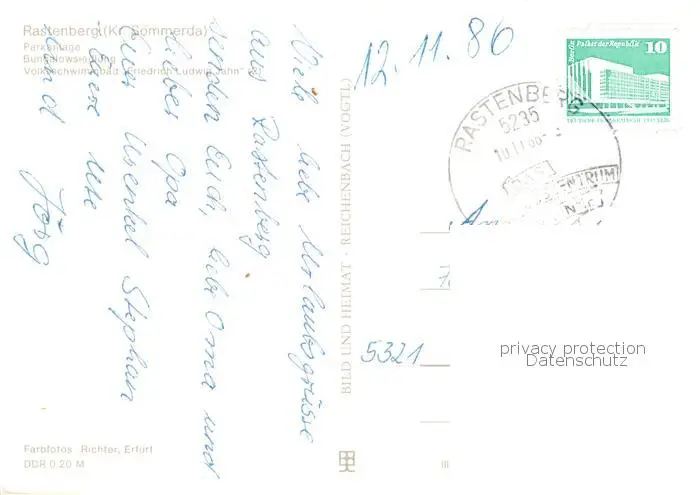 Rastenberg (Kr. Sömmerda)
Parkanlage
Bungalowsiedlung
Volksschwimmbad "Friedrich Ludwig Jahn"
Viele liebe Urlaubsgrüsse
aus Rastenberg
senden Euch, liebe Oma und
lieber Opa
Euer Urenkel Stephan
Eure Ute
und Jörg
Farbfotos Richter, Erfurt
DDR 0,20 M
BILD UND HEIMAT · REICHENBACH (VOGTL)
III
12.11.86
Berlin Palast der Republik
10
DEUTSCHE DEMOKRATISCHE REPUBLIK
RASTENBERG
5235
DAS
ZENTRUM
5321
privacy protection
Datenschutz